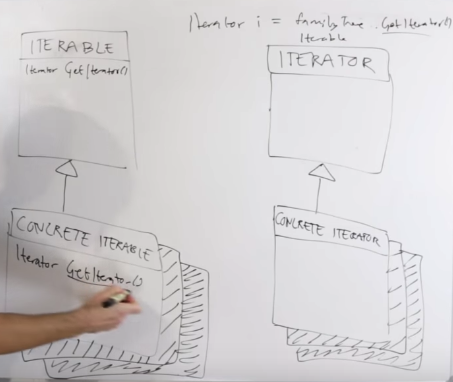 Iterator i = familyTree.GetIterator()
Iterable
ITERABLE
Iterator GetIterator()
ITERATOR
CONCRETE ITERABLE
Iterator GetIterator()
CONCRETE ITERATOR